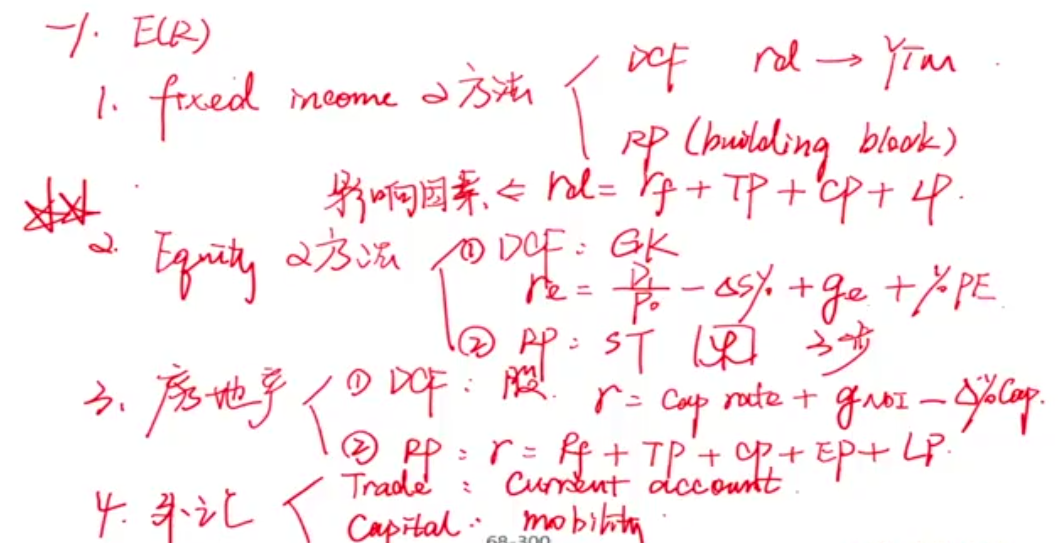 一、E(R)
1. fixed income 2方法 DCF rd → YTM
RP (building block)
影响因素 ⇐ rd = rf + TP + CP + LP.
2. Equity 2方法 ① DCF: GK
re = D1/P0 - ΔS% + ge + % PE
② RP: ST 3步
3. 房地产 ① DCF: 股 r = cap rate + gNOI - Δ%Cap.
② RP: r = Rf + TP + CP + EP + LP.
4. 外汇 Trade: Current account.
Capital: mobility.
68-300